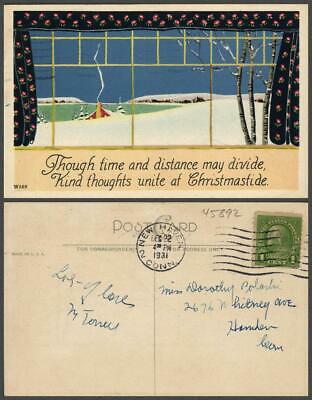 Though time and distance may divide,
Kind thoughts unite at Christmastide.
W389
45892
POST CARD
FOR CORRESPONDENCE
FOR ADDRESS ONLY
MADE IN U.S.A.
NEW HAVEN
DEC 22
4 PM
1931
CONN.
1 CENT 1
Lots of love
Miss Dorothy
2676 Whitney Ave
Hamden
Conn